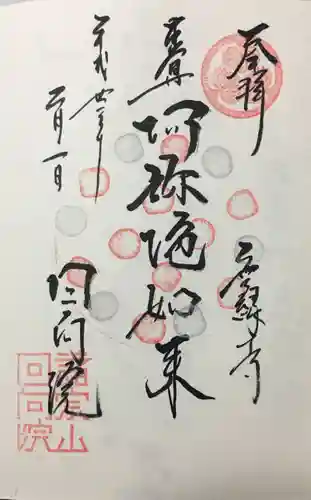 奉拝
阿弥陀如来
平成廿三年
二月一日
回向院
諸宗山
回向院